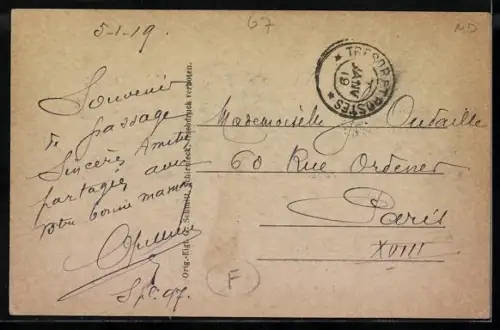 5-1-19.
67
MD
Souvenir
de passage
Sincères Amitiés
partagées avec
votre bonne maman
S.P. 97.
Orig.-Eigt. Schmitt, Schirmeck. Nachdruck verboten.
* TRESOR ET POSTES *
JANV
19
Mademoiselle J. Outaille
60 Rue Ordener
Paris
XVIII
F